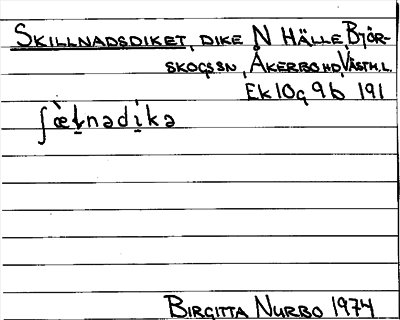 SKILLNADSDIKET, DIKE N HÄLLE, BJÖR-
SKOGS SN, ÅKERBO HD, VÄSTM.L.
EK 10G 9b 191
ʃæ̀ḻnadi̱kə
BIRGITTA NURBO 1974